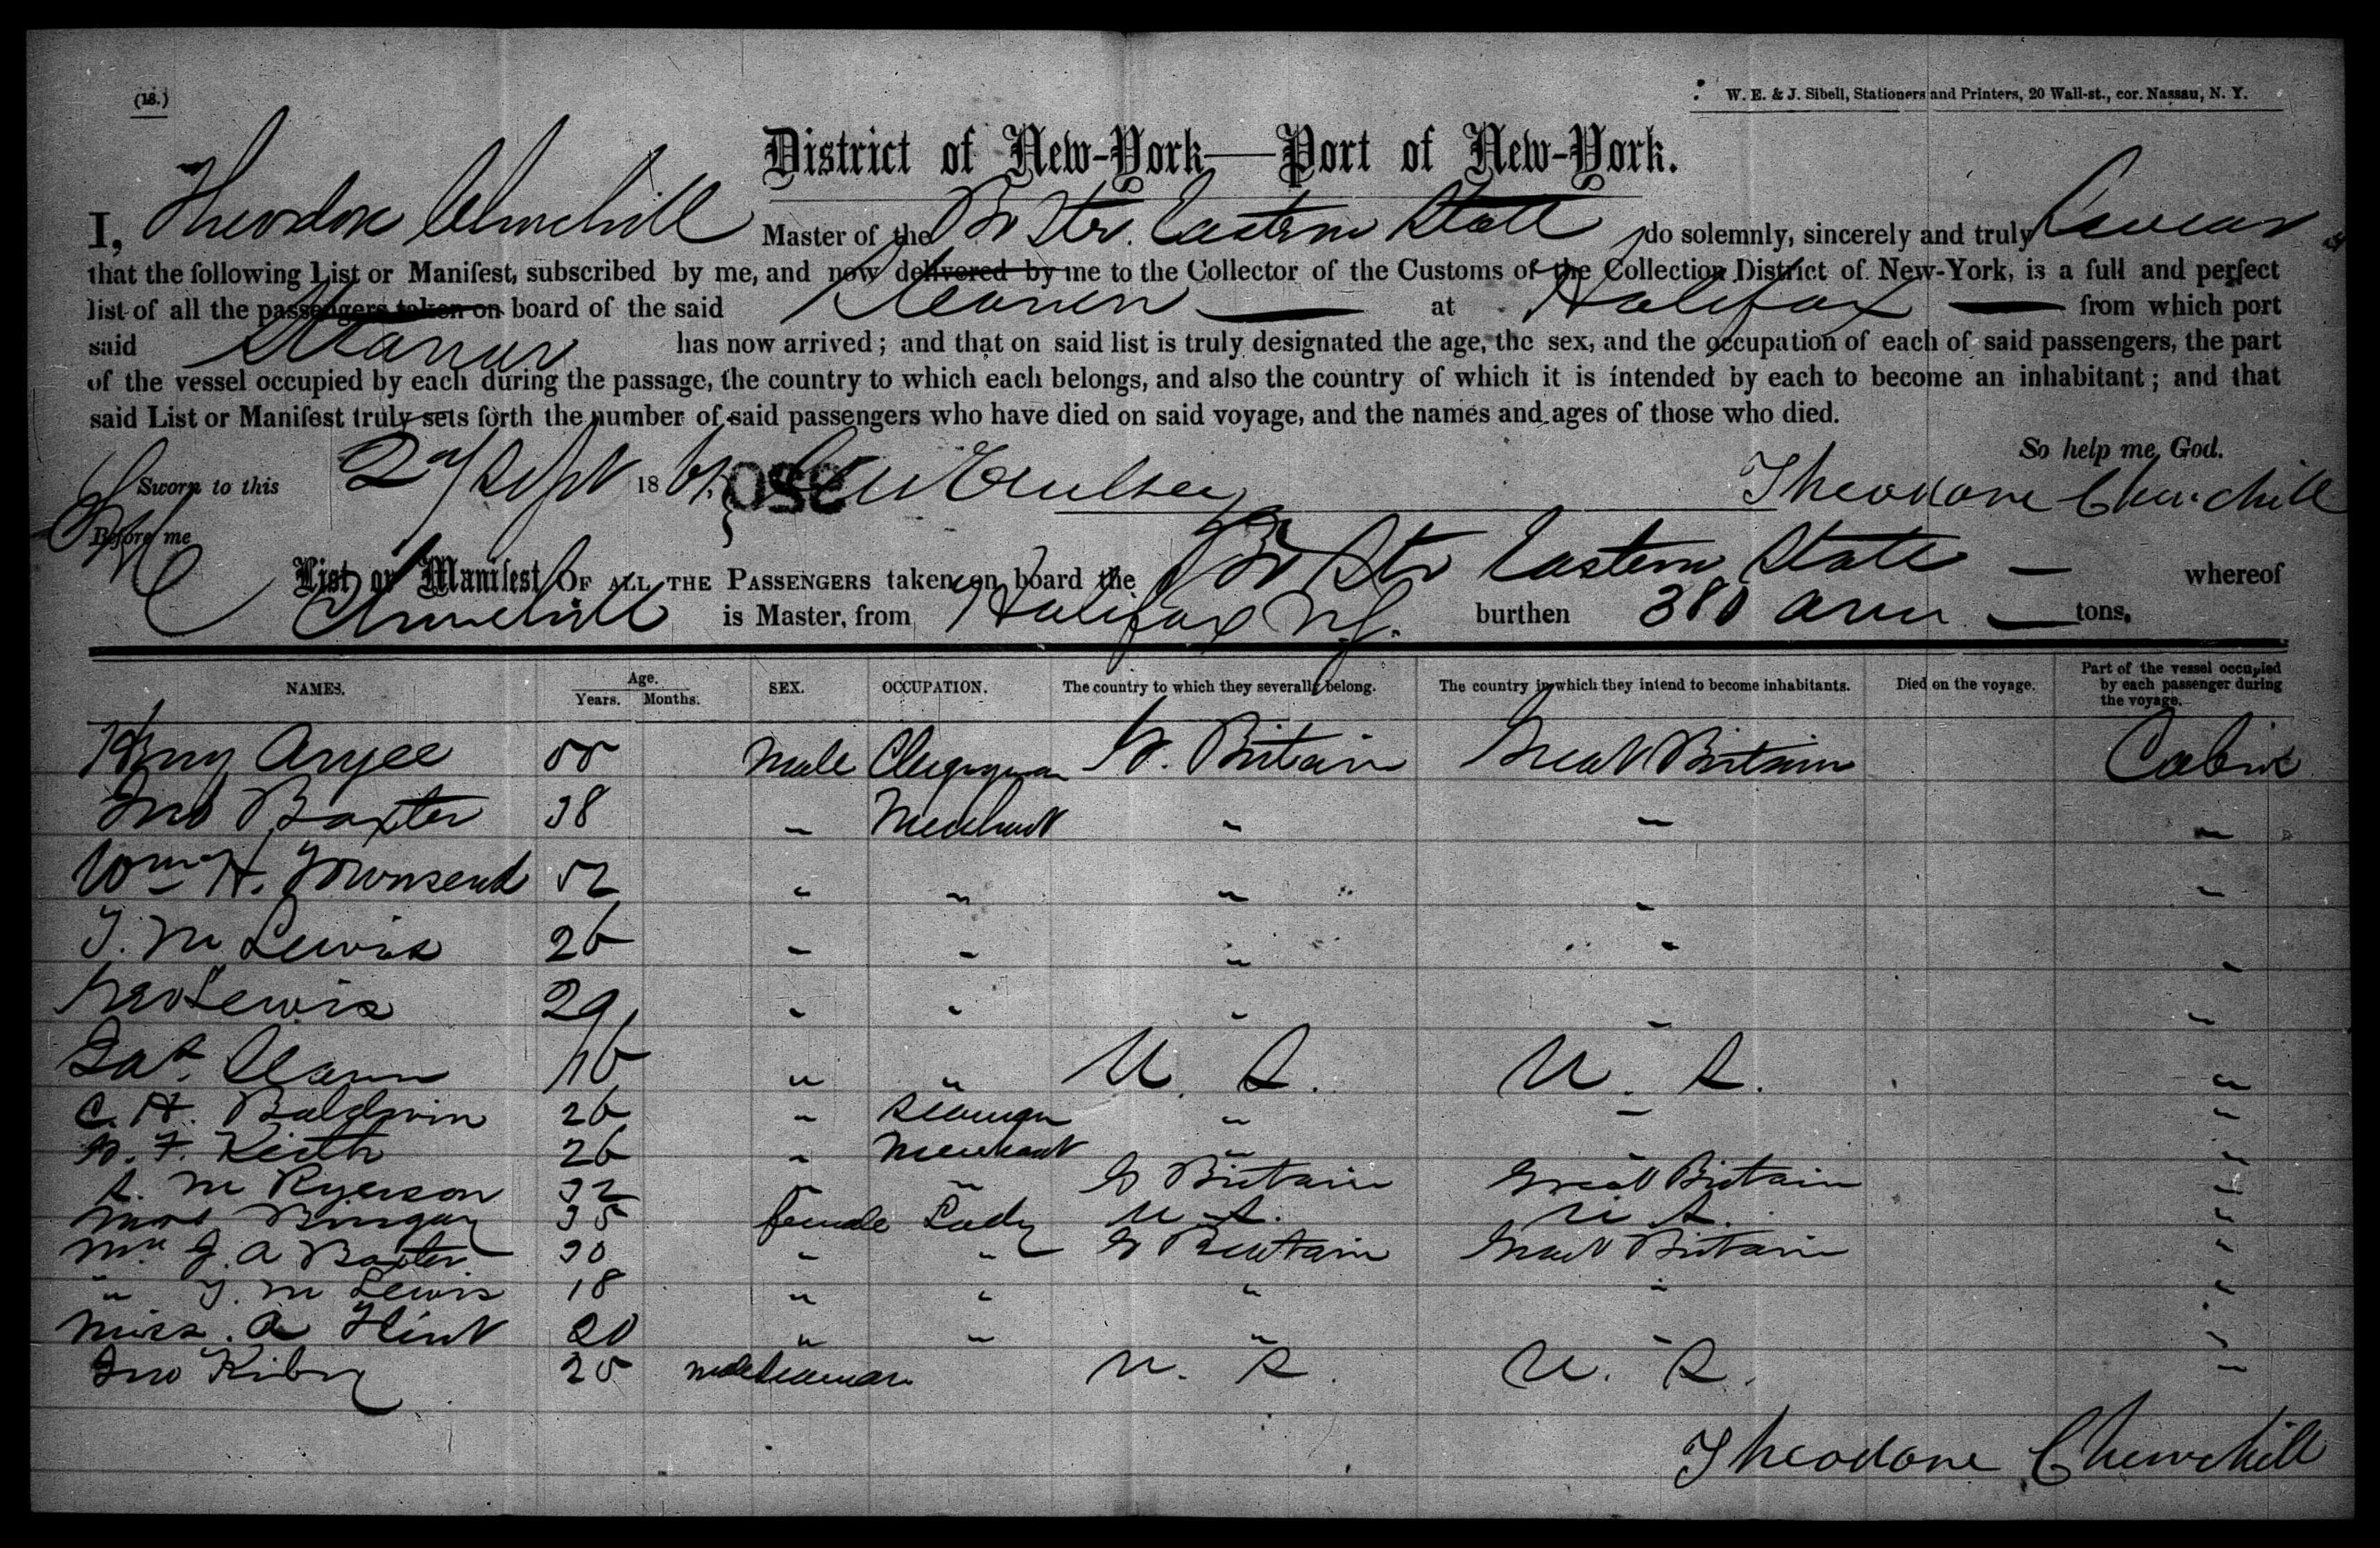 (18.)
W. E. & J. Sibell, Stationers and Printers, 20 Wall-st., cor. Nassau, N. Y.
District of New-York—Port of New-York.
I, Theodore Churchill Master of the Br Str. Eastern State do solemnly, sincerely and truly Swear
that the following List or Manifest, subscribed by me, and now delivered by me to the Collector of the Customs of the Collection District of New-York, is a full and perfect
list of all the passengers taken on board of the said Steamer at Halifax from which port
said Steamer has now arrived; and that on said list is truly designated the age, the sex, and the occupation of each of said passengers, the part
of the vessel occupied by each during the passage, the country to which each belongs, and also the country of which it is intended by each to become an inhabitant; and that
said List or Manifest truly sets forth the number of said passengers who have died on said voyage, and the names and ages of those who died.
So help me, God.
Sworn to this 2d Sept 18 Theodore Churchill
Before me
List or Manifest OF ALL THE PASSENGERS taken on board the Br Str Eastern State — whereof
Churchill is Master, from Halifax N.S. burthen 380 tons.
NAMES. Age. Years. Months. SEX. OCCUPATION. The country to which they severally belong. The country in which they intend to become inhabitants. Died on the voyage. Part of the vessel occupied by each passenger during the voyage.
Henry 55 Male Clergyman G. Britain Great Britain Cabin
Jno Baxter 38 " Merchant " " "
Wm H. Townsend 52 " " " " "
T. M Lewis 26 " " " " "
Geo Lewis 29 " " " " "
Jas. Clann 16 " " U. S. U. S. "
C. H. Baldwin 26 " Seaman " " "
N. F. Keith 26 " Merchant " " "
S. M Ryerson 32 " " G Britain Great Britain "
Mrs Bingay 35 female Lady U S. U S. "
Mrs J. A Baxter 30 " " G Britain Great Britain "
" T. M Lewis 18 " " " " "
Miss. A Flint 20 " " " " "
Jno Kirby 25 male Seaman U. S. U. S. "
Theodore Churchill